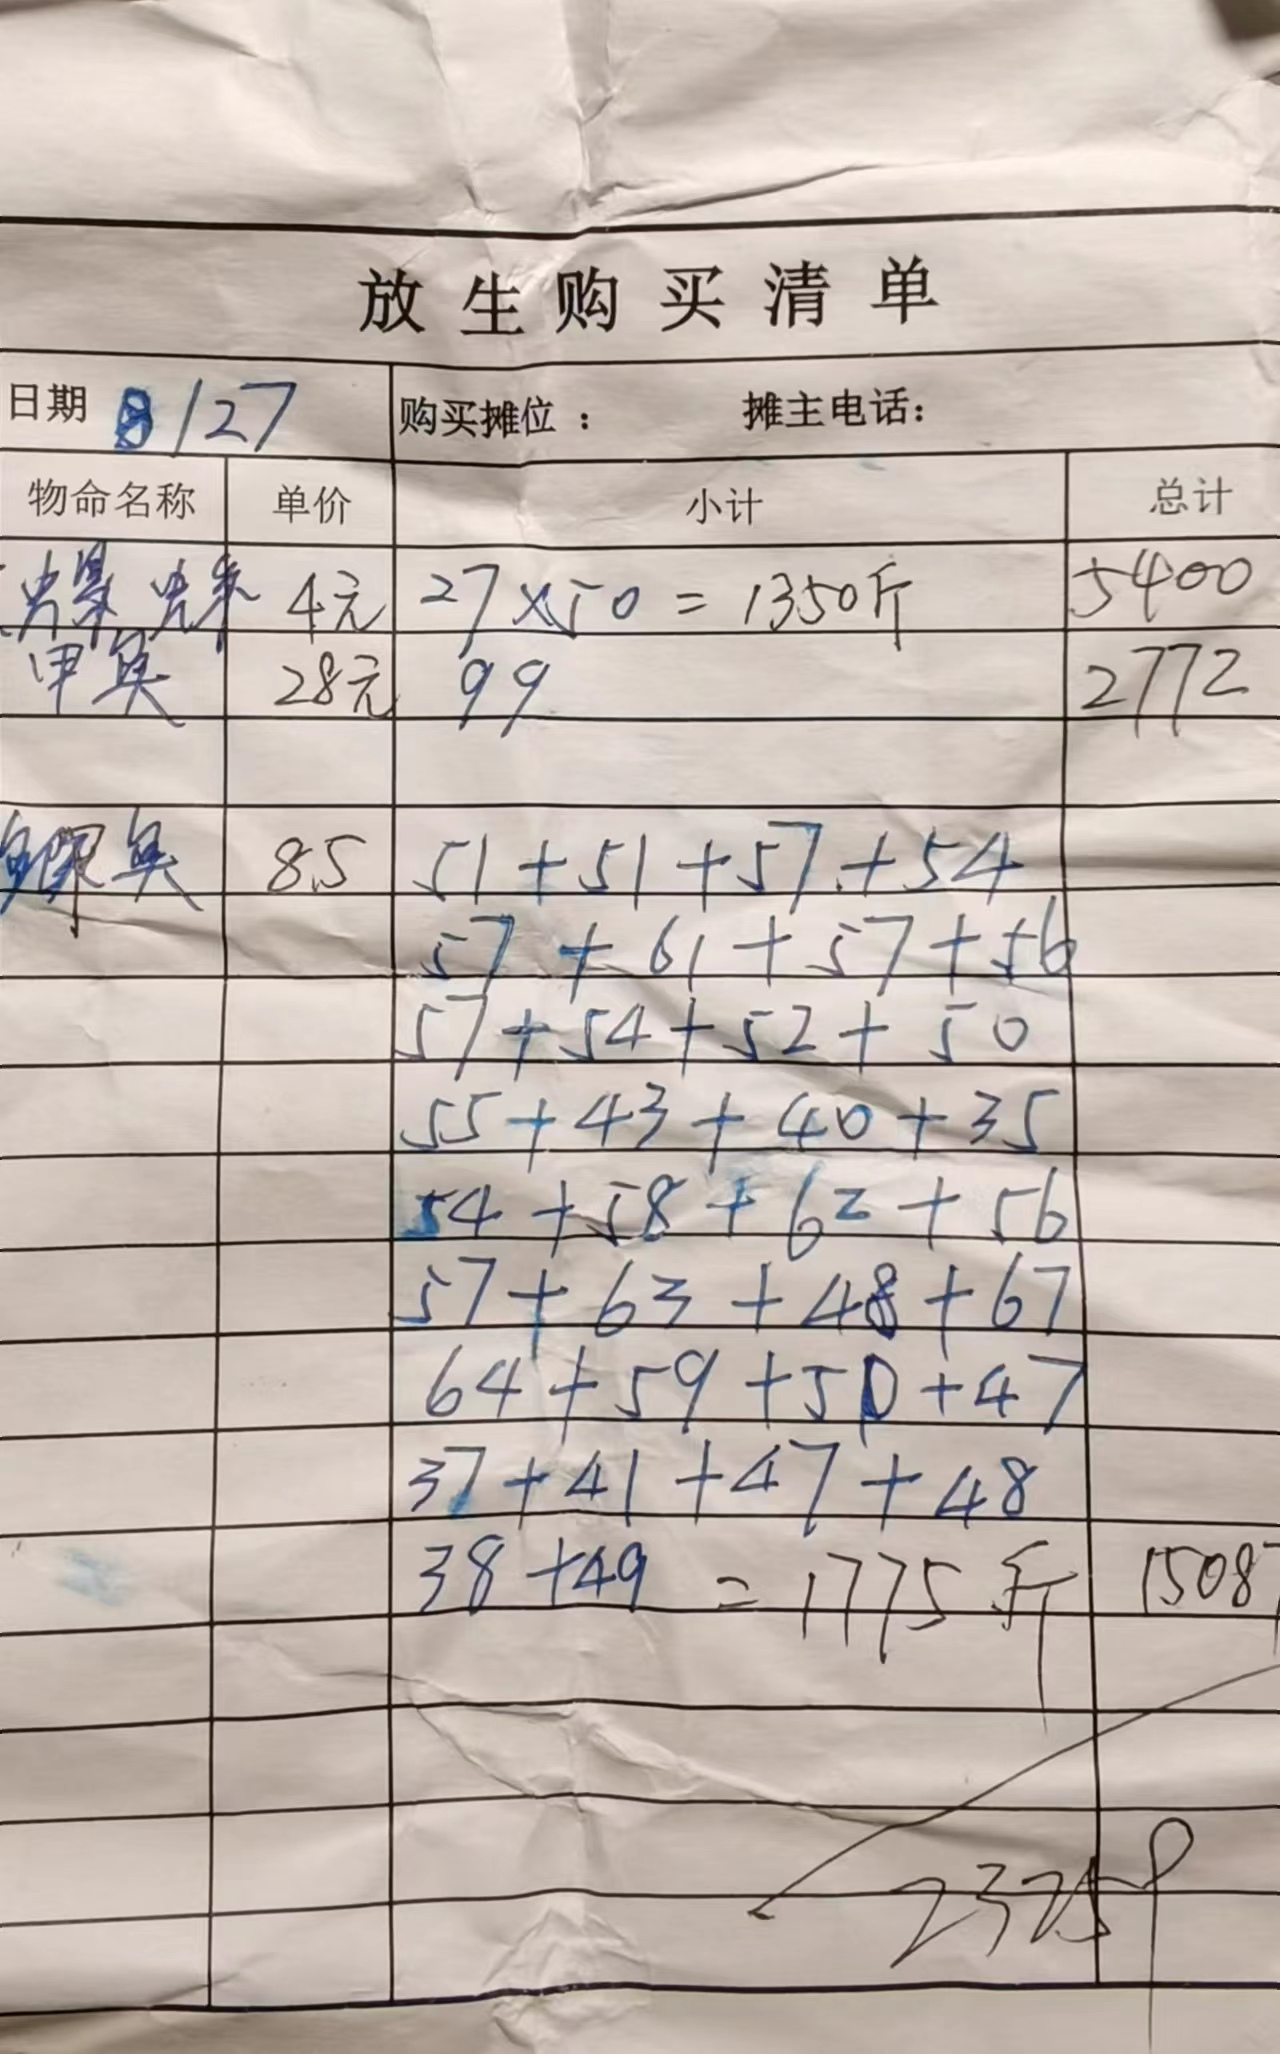 放生购买清单
日期 8/27 购买摊位： 摊主电话：
物命名称 单价 小计 总计
4元 27×50=1350斤 5400
甲鱼 28元 99 2772
鱼 8.5 51+51+57+54
57+61+57+56
57+54+52+50
55+43+40+35
54+58+62+56
57+63+48+67
64+59+50+47
37+41+47+48
38+49=1775斤 15087
23259